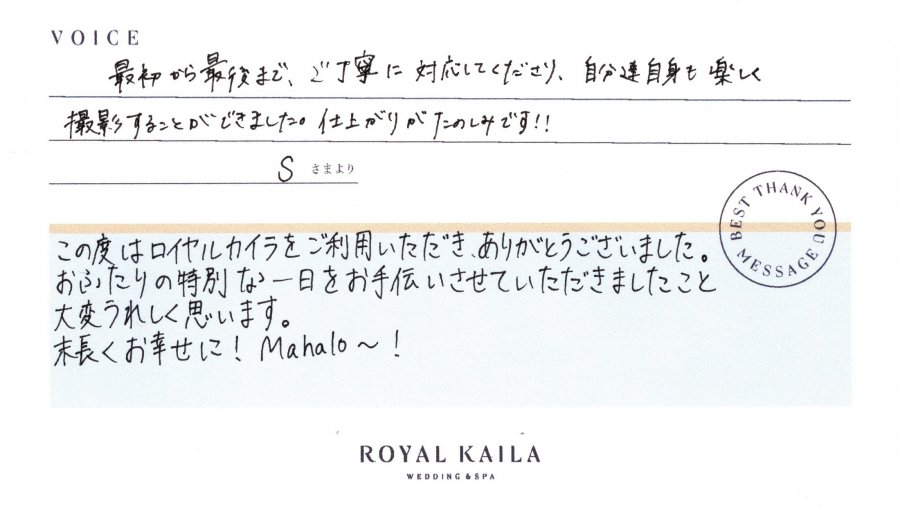 VOICE
最初から最後まで、ご丁寧に対応してくださり、自分達自身も楽しく
撮影することができました。仕上がりがたのしみです!!
S さまより
BEST THANK YOU MESSAGE
この度はロイヤルカイラをご利用いただき、ありがとうございました。
おふたりの特別な一日をお手伝いさせていただきましたこと
大変うれしく思います。
末長くお幸せに! Mahalo~!
ROYAL KAILA
WEDDING & SPA